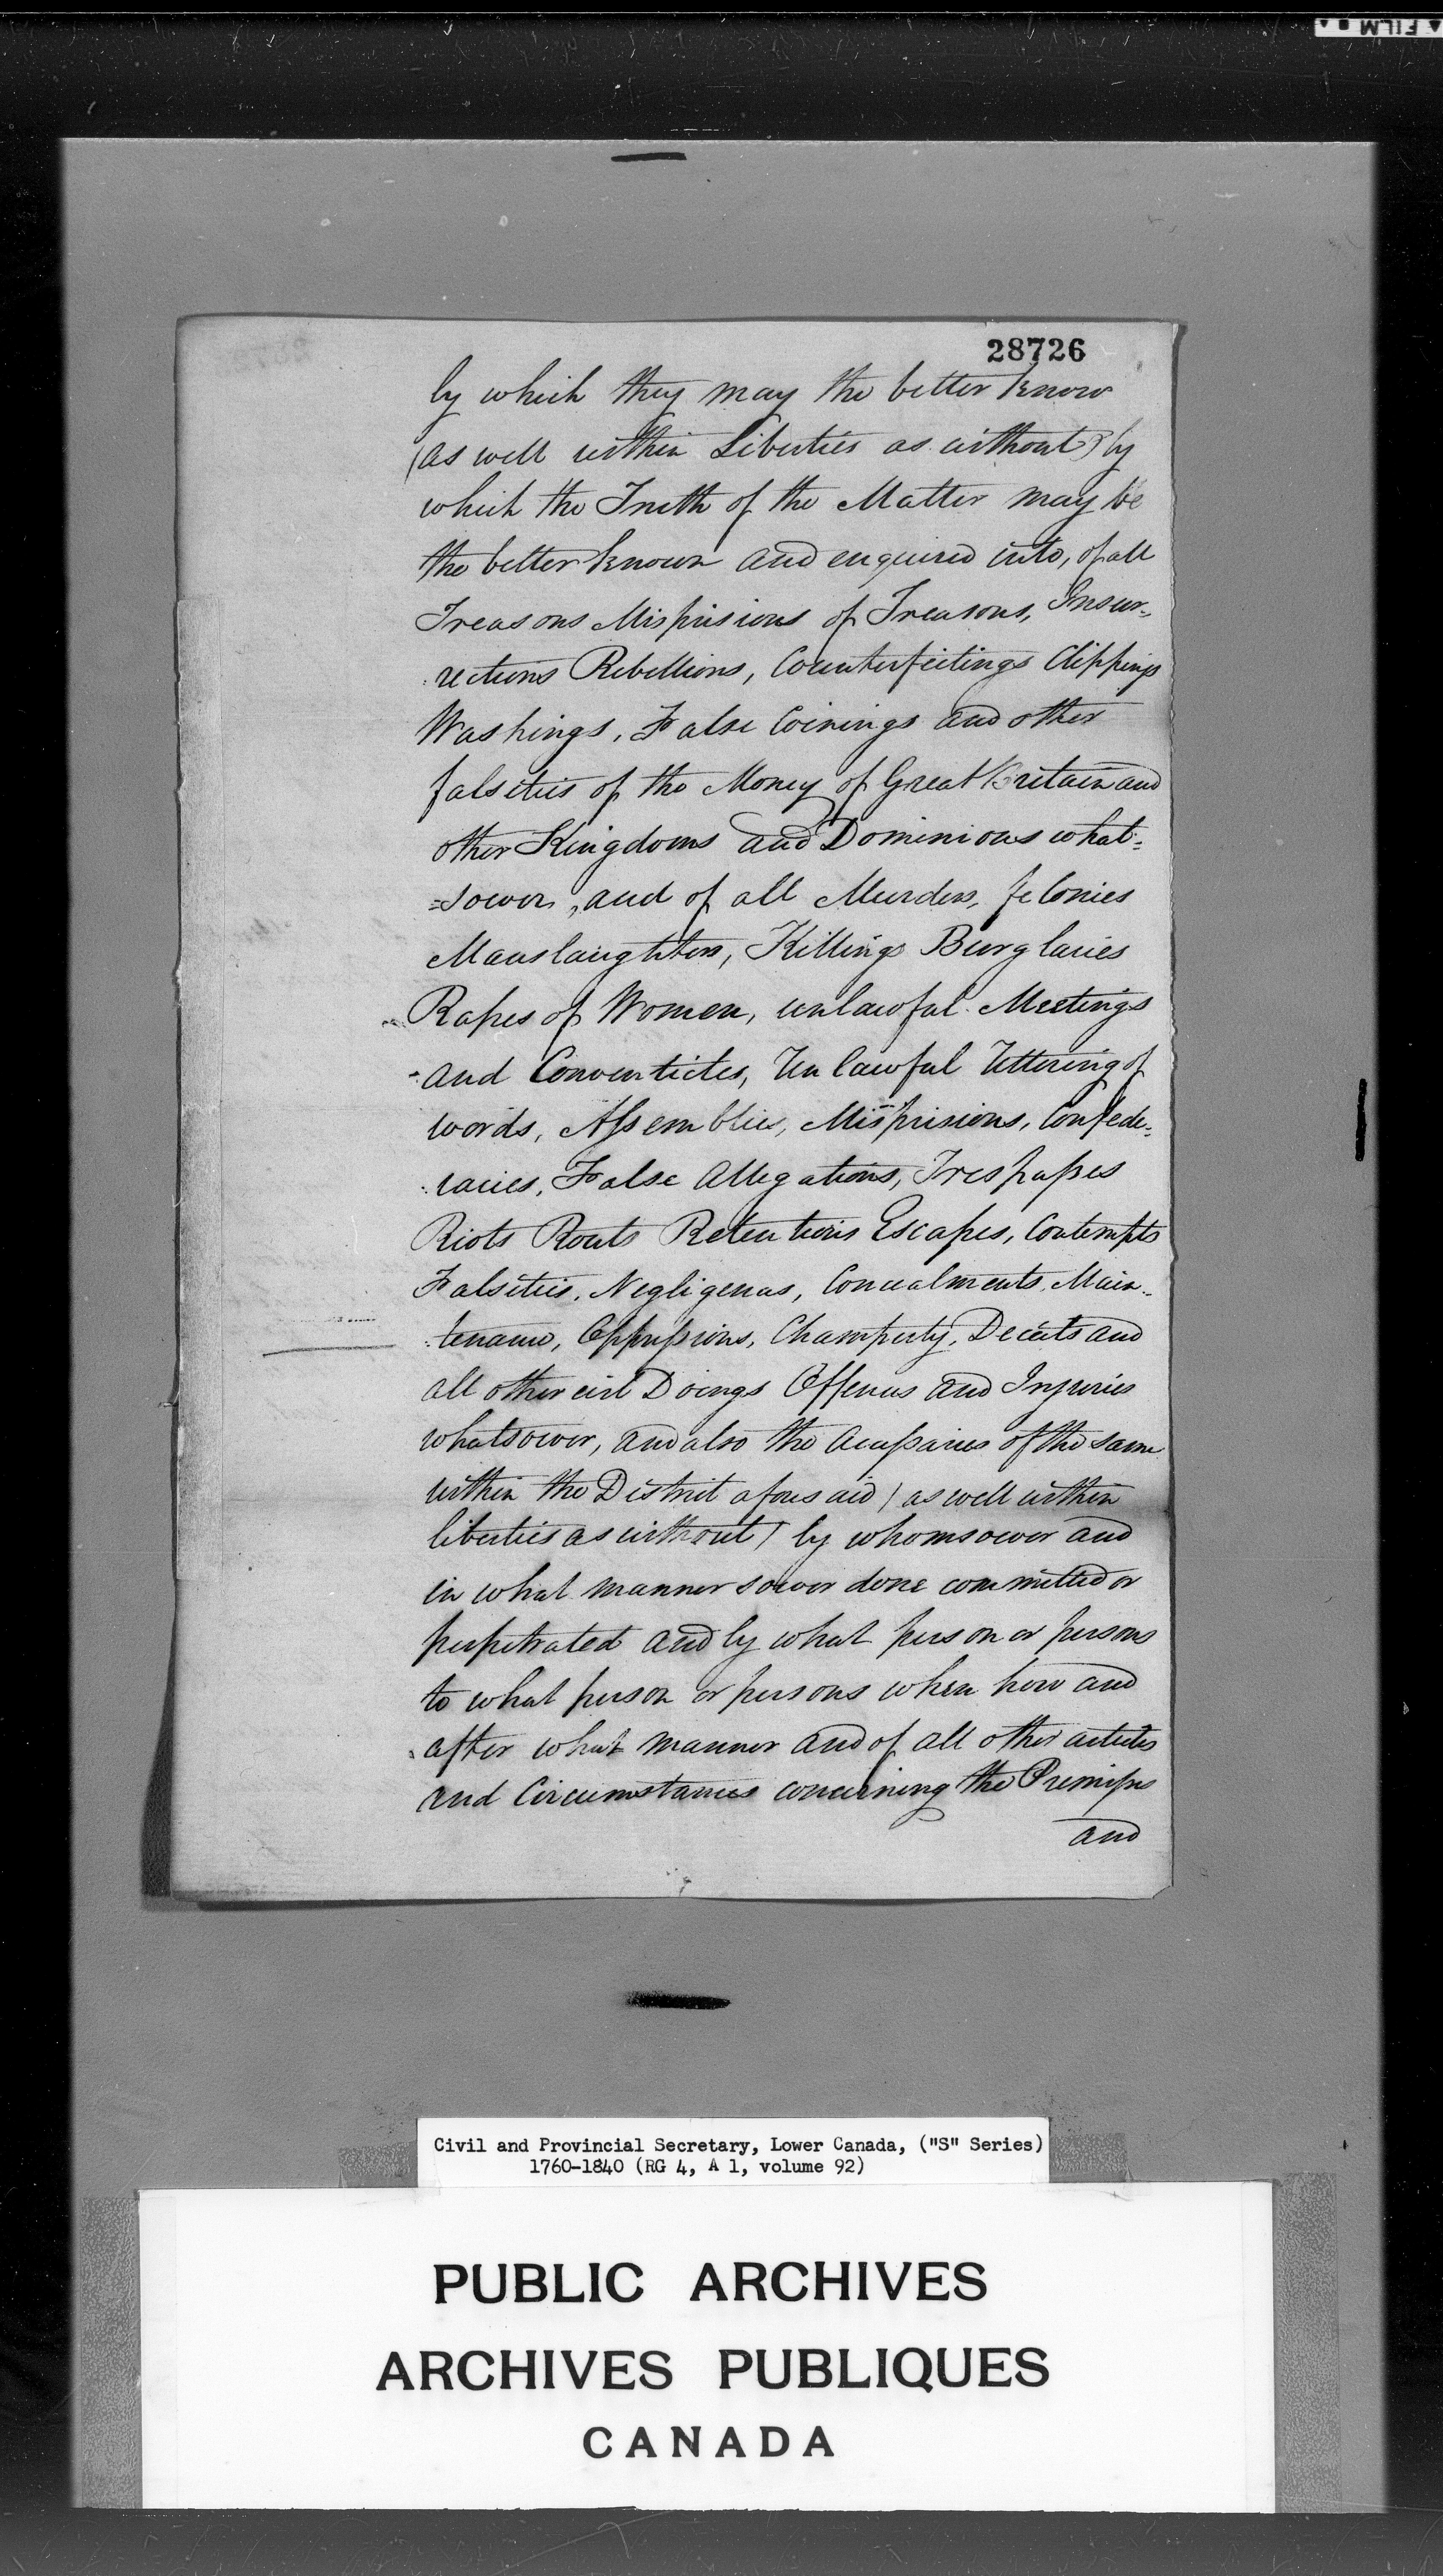 28726
by which they may the better know
(as well within Liberties as without) by
which the Truth of the Matter may be
the better known and enquired into, of all
Treasons Misprisions of Treasons, Insur-
rections Rebellions, Counterfeitings Clippings
Washings, False Coinings and other
falsities of the Money of Great Britain and
other Kingdoms and Dominions what=
=soever, and of all Murders, felonies
Manslaughters, Killings Burglaries
Rapes of Women, unlawful Meetings
and Conventicles, Unlawful Uttering of
words, Assemblies, Misprisions, Confede-
racies, False Allegations, Trespasses
Riots Routs Retentions Escapes, Contempts
Falsities, Negligences, Concealments, Main-
tenance, Oppressions, Champerty, Deceits and
all other evil Doings Offences and Injuries
whatsoever, and also the Accessaries of the same
within the District aforesaid (as well within
liberties as without) by whomsoever and
in what manner soever done committed or
perpetrated and by what person or persons
to what person or persons when how and
after what manner and of all other articles
and Circumstances concerning the Premises
and
Civil and Provincial Secretary, Lower Canada, ("S" Series)
1760-1840 (RG 4, A 1, volume 92)
PUBLIC ARCHIVES
ARCHIVES PUBLIQUES
CANADA
FILM